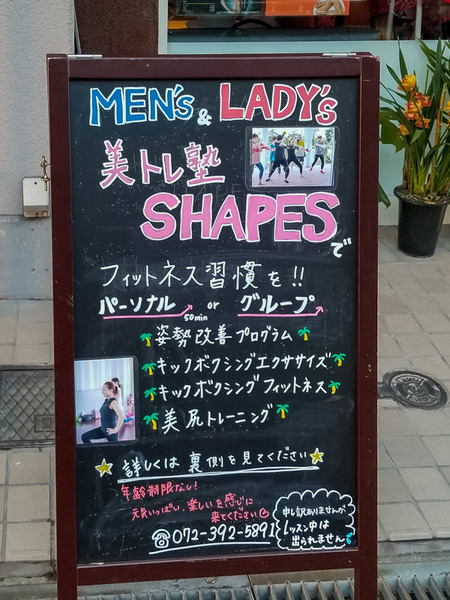 MEN's & LADY's
美トレ塾
SHAPESで
フィットネス習慣を!!
パーソナル or グループ
50min
姿勢改善プログラム
キックボクシングエクササイズ
キックボクシングフィットネス
美尻トレーニング
詳しくは裏側を見てください
年齢制限なし!
元気いっぱい、楽しいを感じに
来てください
☎072-392-5891
申し訳ありませんが
レッスン中は
出られません